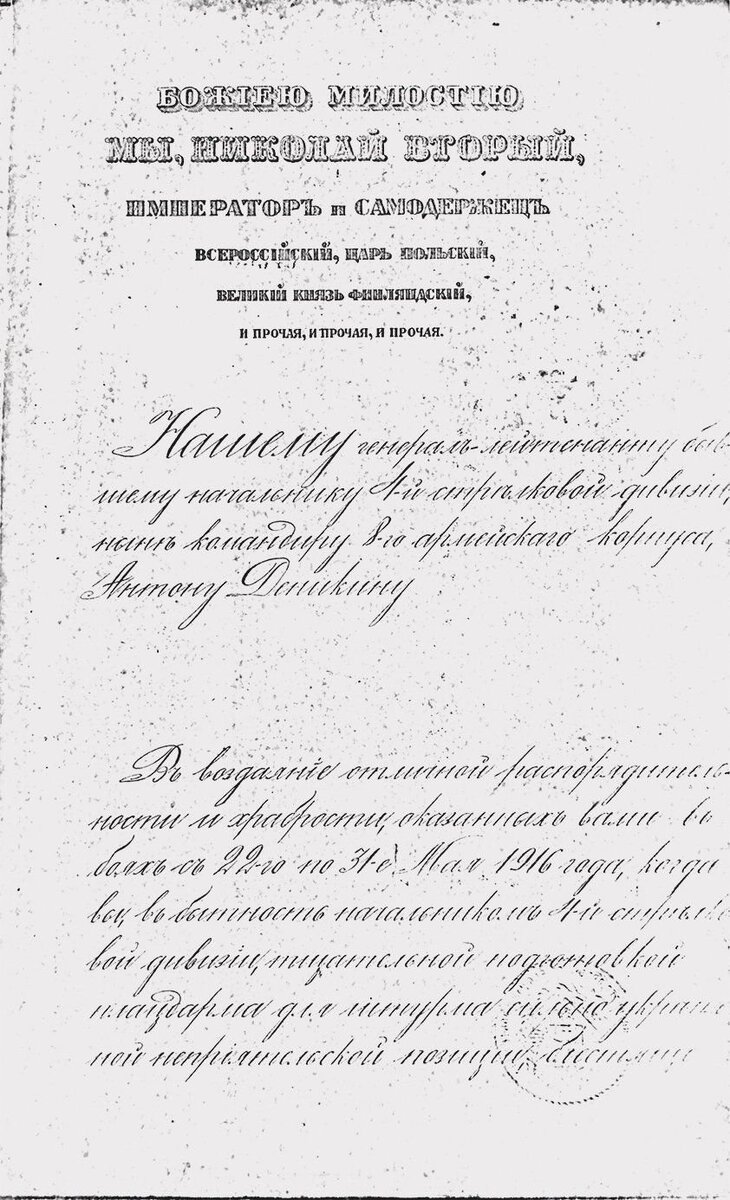 БОЖІЕЮ МИЛОСТІЮ
МЫ, НИКОЛАЙ ВТОРЫЙ,
ИМПЕРАТОРЪ и САМОДЕРЖЕЦЪ
ВСЕРОССІЙСКІЙ, ЦАРЬ ПОЛЬСКІЙ,
ВЕЛИКІЙ КНЯЗЬ ФИНЛЯНДСКІЙ,
И ПРОЧАЯ, И ПРОЧАЯ, И ПРОЧАЯ.
Нашему генералъ-лейтенанту быв-
шему начальнику 4-й стрѣлковой дивизіи,
нынѣ командиру 8-го армейскаго корпуса,
Антону Деникину
Въ воздаяніе отличной распорядитель-
ности и храбрости, оказанныхъ вами въ
бояхъ съ 22-го по 31-е Мая 1916 года, когда
вы, въ бытность начальникомъ 4-й стрѣлко
вой дивизіи, тщательной подготовкой
плацдарма для штурма сильно укрѣплен
ной непріятельской позиціи, блестящи